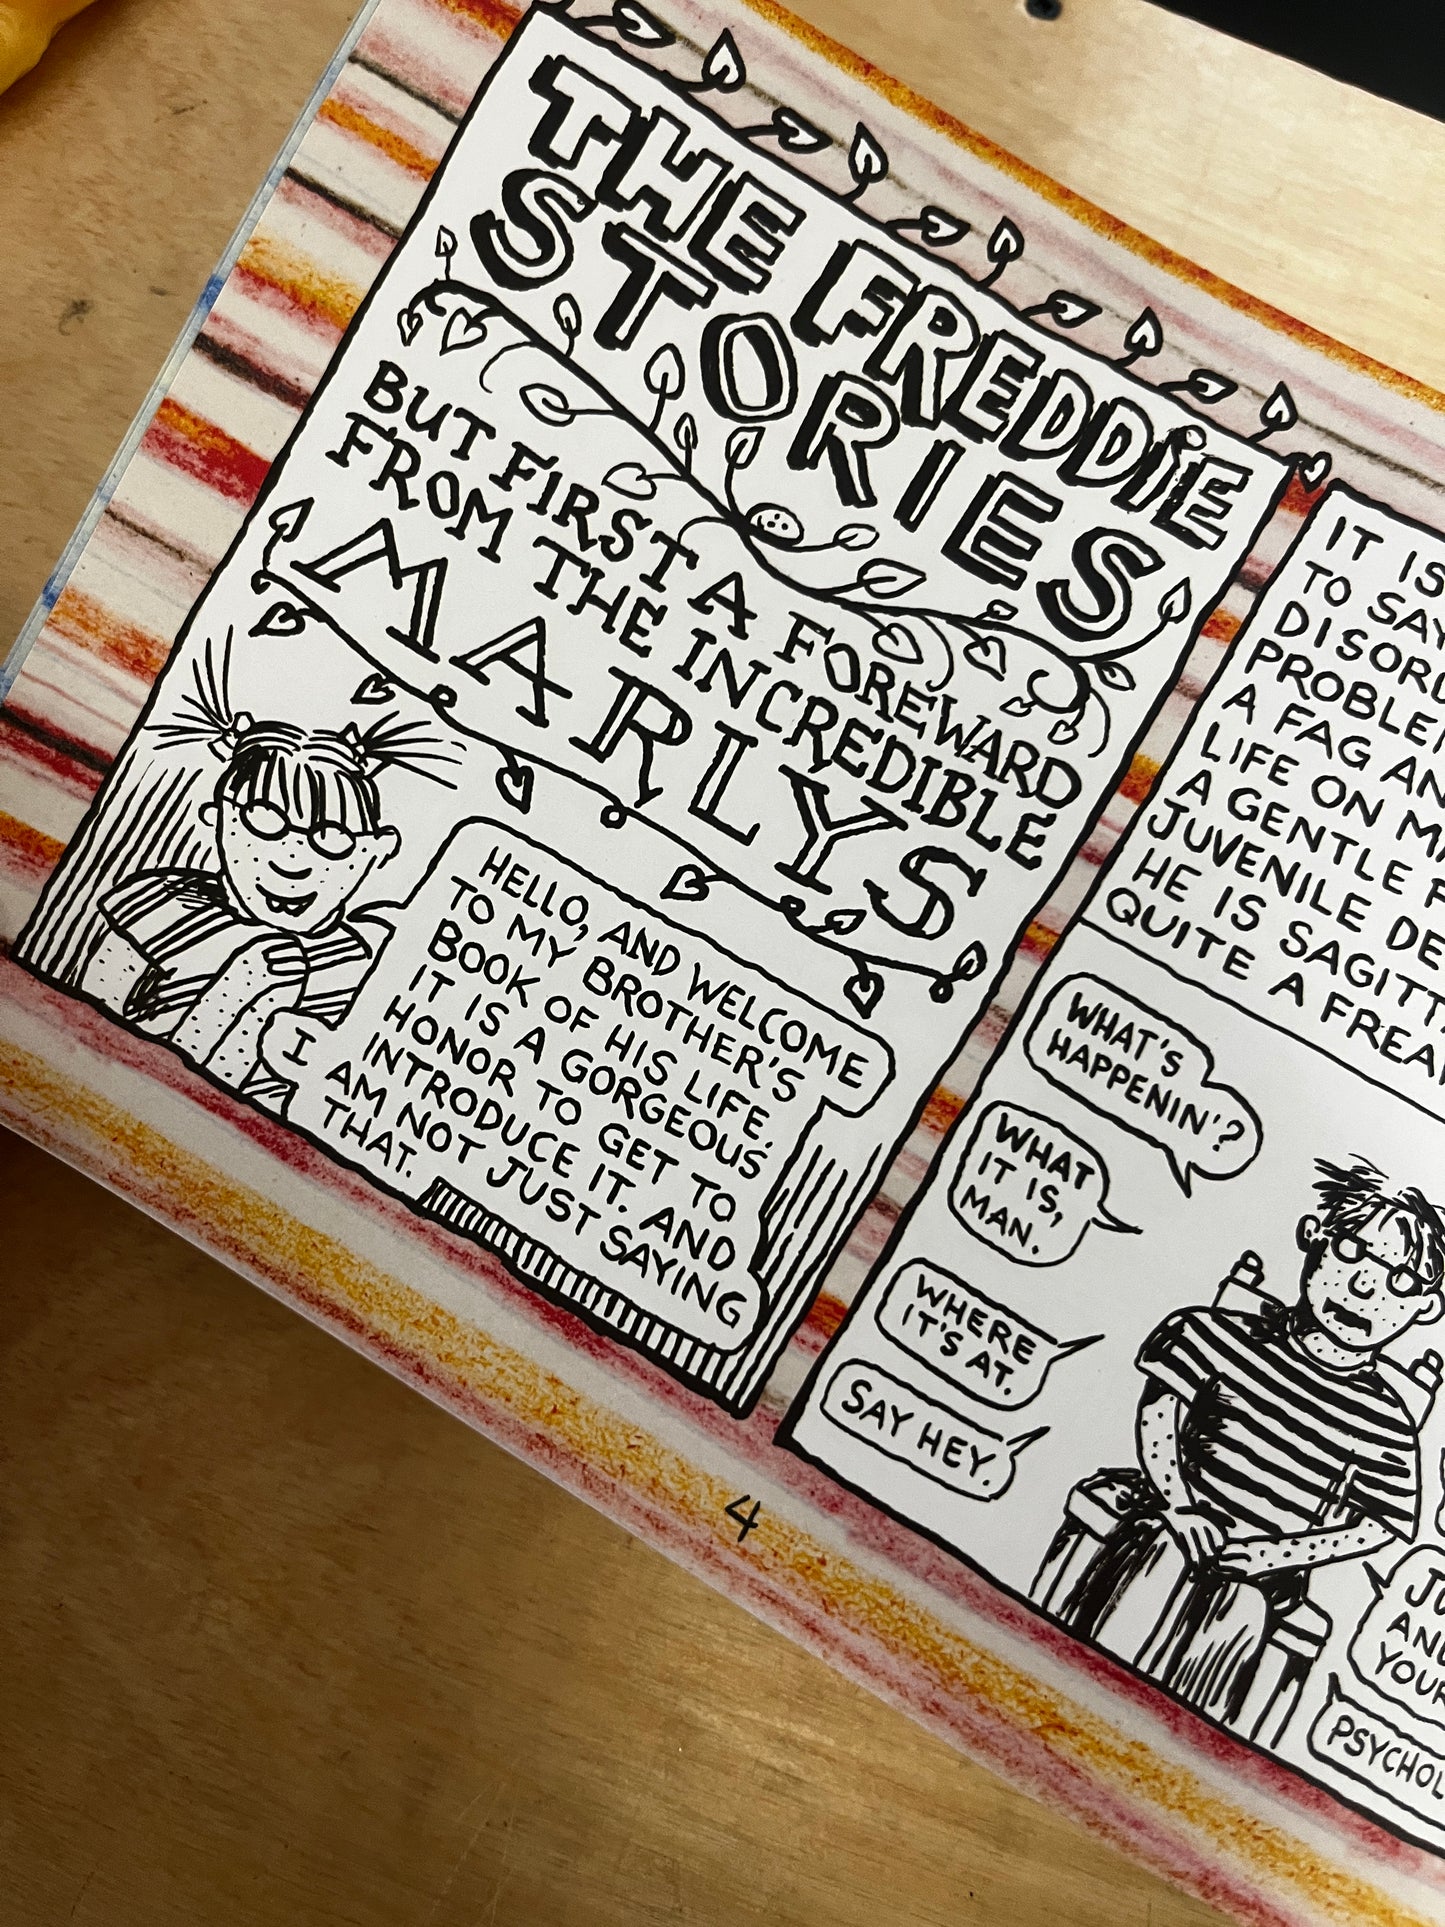 THE FREDDIE
STORIES
BUT FIRST A FOREWARD
FROM THE INCREDIBLE
MARLYS
HELLO, AND WELCOME
TO MY BROTHER'S
BOOK OF HIS LIFE.
IT IS A GORGEOUS
HONOR TO GET TO
INTRODUCE IT. AND
I AM NOT JUST SAYING
THAT.
IT IS
TO SAY
PROBLEM
A FAG AN
LIFE ON
A GENTLE
JUVENILE
HE IS
QUITE A
WHAT'S
HAPPENIN'?
WHAT
IT IS,
MAN.
WHERE
IT'S AT.
SAY HEY.
4